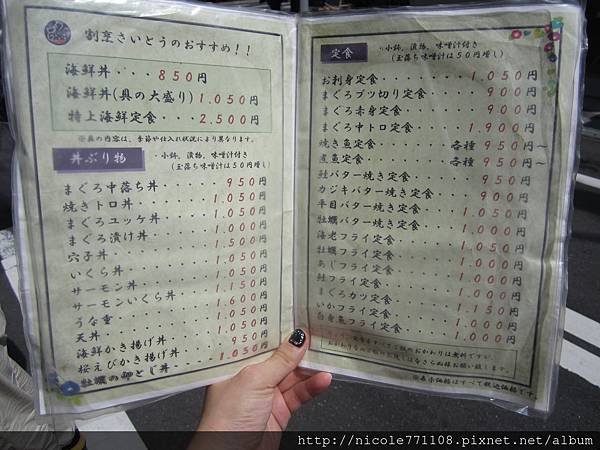 割烹さいとうのおすすめ！！
海鮮丼・・・850円
海鮮丼(具の大盛り)1.050円
特上海鮮定食・・・2.500円
※具の内容は、季節や仕入れ状況により異なります。
丼ぶり物
・小鉢、漬物、味噌汁付き
(玉落ち味噌汁は50円増し)
まぐろ中落ち丼・・・・950円
焼きトロ丼・・・・・1.050円
まぐろユッケ丼・・・・1.050円
まぐろ漬け丼・・・・1.000円
穴子丼・・・・・・1.500円
いくら丼・・・・・1.050円
サーモン丼・・・・・1.050円
サーモンいくら丼・・・1.150円
うな重・・・・・・1.600円
天丼・・・・・・・1.050円
海鮮かき揚げ丼・・・・1.050円
桜えびかき揚げ丼・・・950円
牡蠣の卵とじ丼・・・・1.050円
定食
・小鉢、漬物、味噌汁付き
(玉落ち味噌汁は50円増し)
お刺身定食・・・・・・1.050円
まぐろブツ切り定食・・・900円
まぐろ赤身定食・・・・・900円
まぐろ中トロ定食・・・・1.900円
焼き魚定食・・・・・各種 950円～
煮魚定食・・・・・・各種 950円～
鮭バター焼き定食・・・・950円
カジキバター焼き定食・・・900円
平目バター焼き定食・・・1.050円
牡蠣バター焼き定食・・・1.050円
海老フライ定食・・・・1.050円
牡蠣フライ定食・・・・1.050円
あじフライ定食・・・・1.000円
鮭フライ定食・・・・・1.000円
まぐろカツ定食・・・・1.000円
いかフライ定食・・・・1.150円
白身魚フライ定食・・・1.000円
おかわりは無料です。
※表示価格はすべて税込価格です。
http://nicole771108.pixnet.net/album